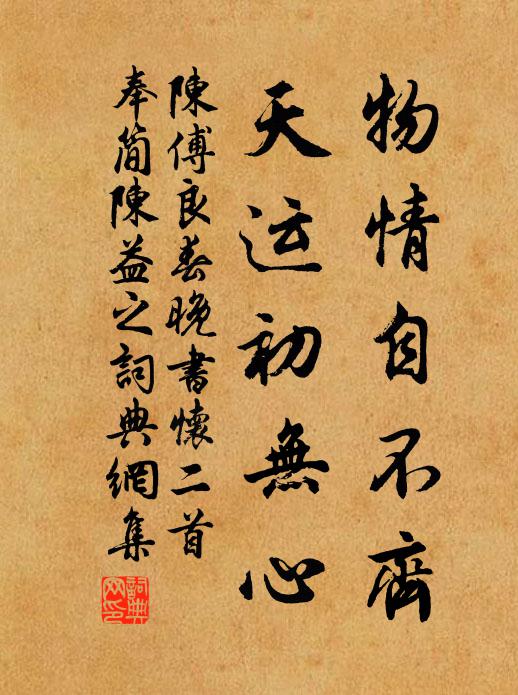 物情自不齊
天运初無心
陳傅良春晚書懷二首
奉簡陳益之詞典網集
詞典网印